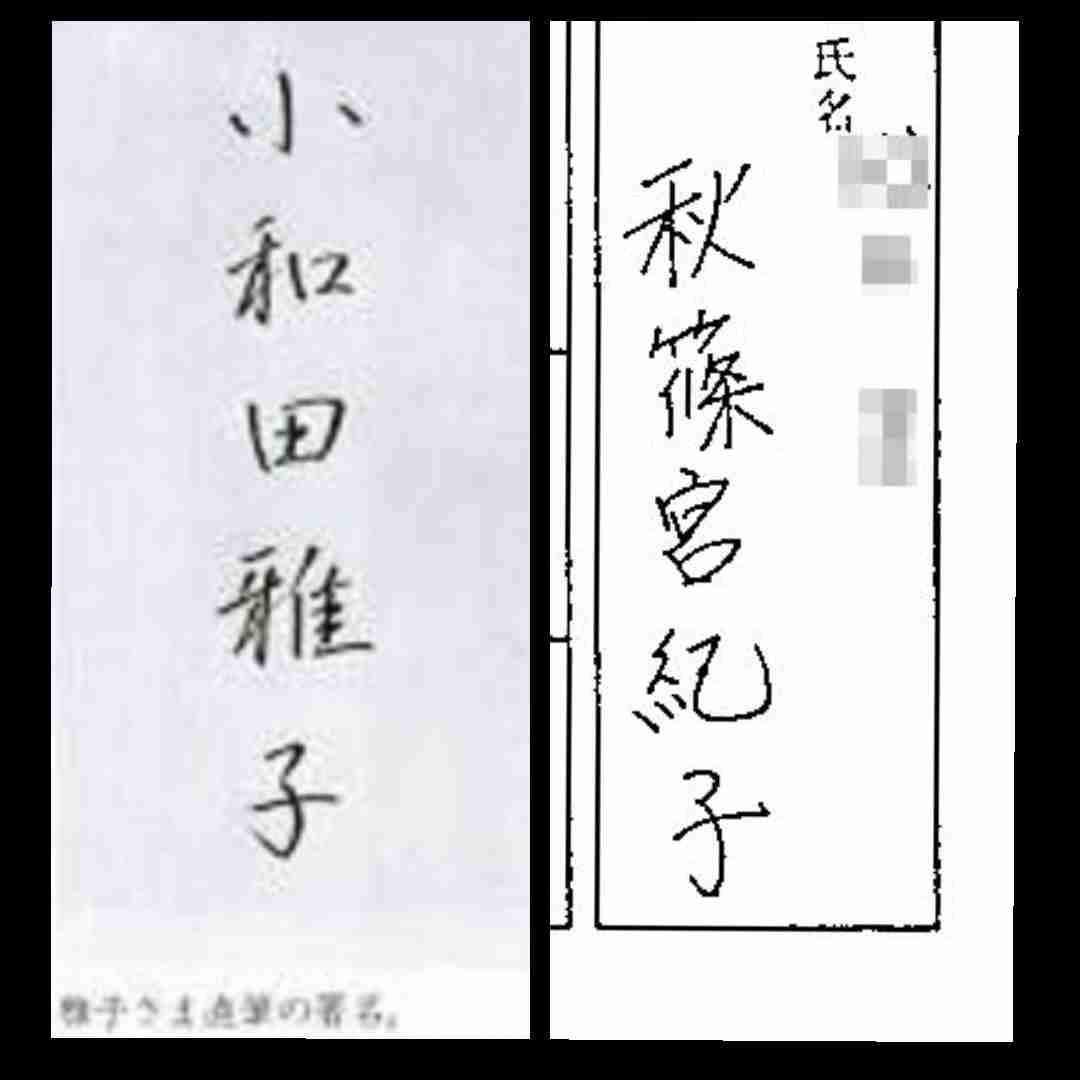 小和田雅子
雅子さま直筆の署名。
氏名
秋篠宮紀子